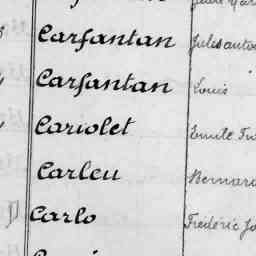 Carfantan Jules
Carfantan Louis
Cariolet Emile
Carleu Bernard
Carlo Frédéric